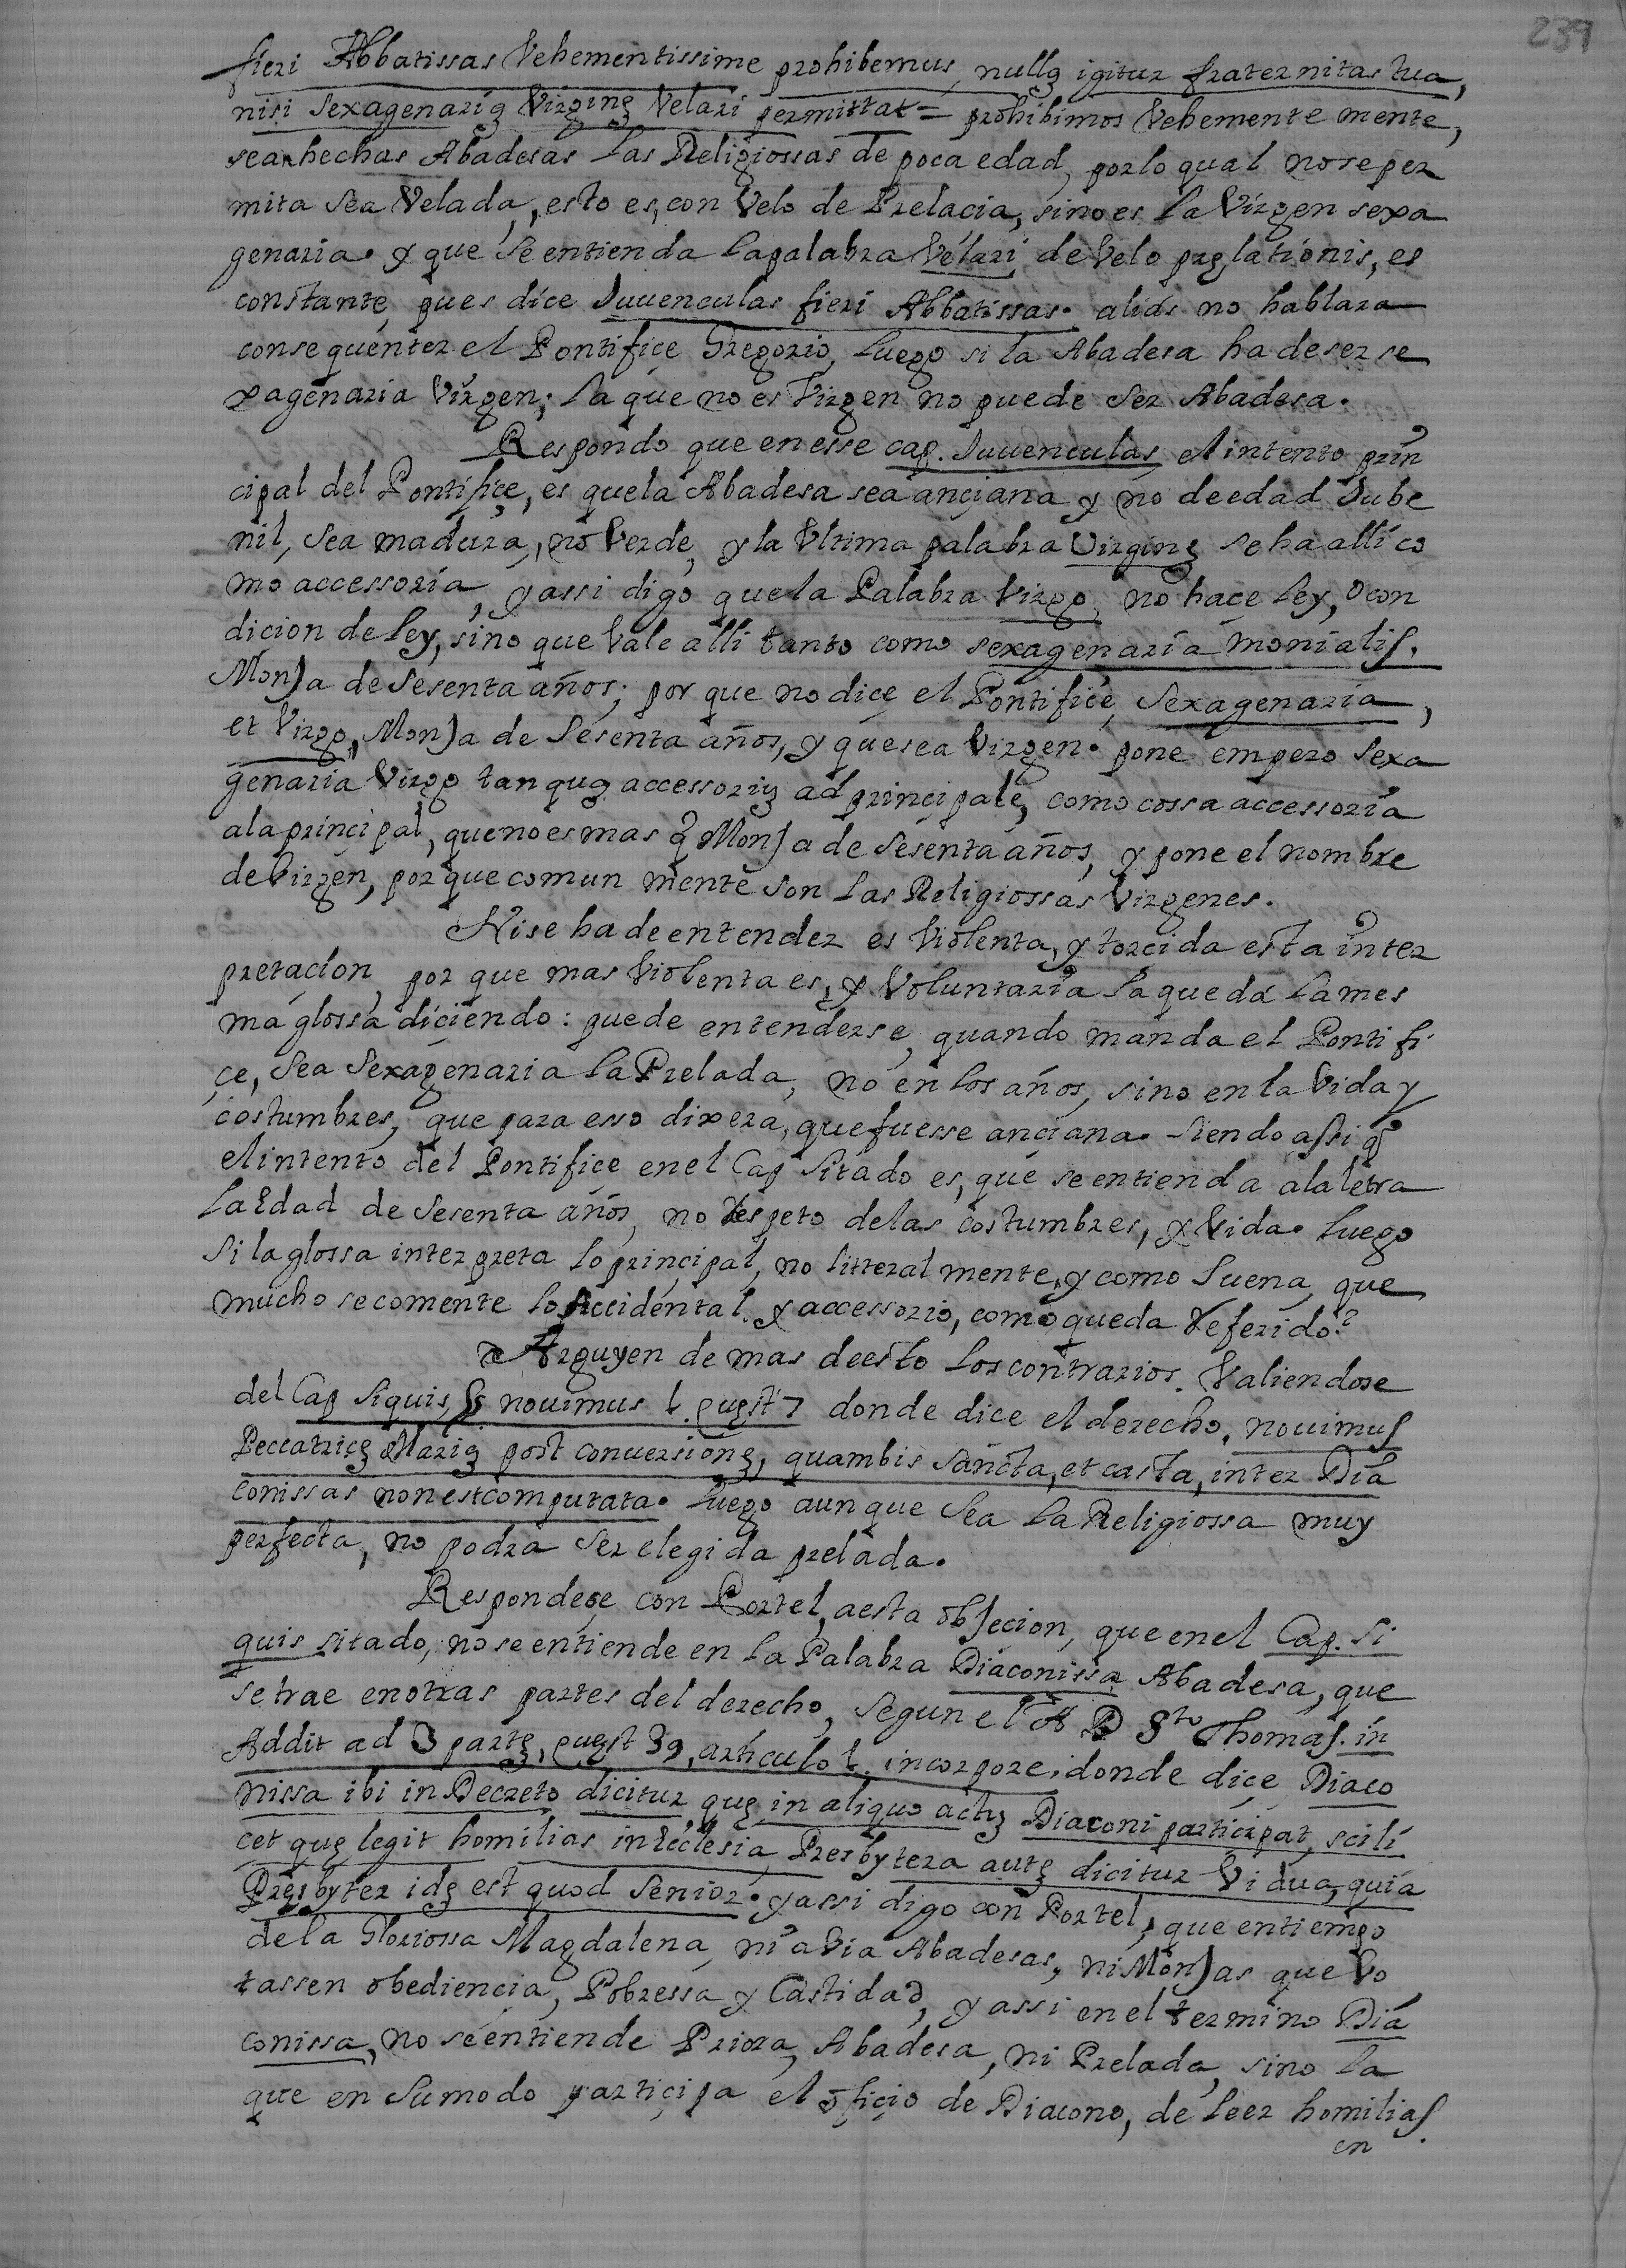 239
fieri Abbatissas Vehementissime prohibemus, nullã igitur fraternitas tua,
nisi Sexagenariã Virginẽ Velari permittat = prohibimos Vehemente mente,
sean hechas Abadesas las Religiossas de poca edad, por lo qual no se per
mita sea Velada, esto es, con Velo de Prelacia, sino es la Virgen sexa
genaria. y que se entienda la palabra Velari de Velo prælationis, es
constante, pues dice Juuenculas fieri Abbatissas. aliàs no hablara
consequenter el Pontifice Gregorio, luego si la Abadesa ha de ser se
xagenaria Virgen; la que no es Virgen no puede ser Abadesa.
Respondo que en esse cap. Juuenculas, el intento prin
cipal del Pontifiçe, es que la Abadesa sea anciana y no de edad Jube
nil, sea madura, no Verde, y la Vltima palabra Virginẽ se ha alli co
mo accessoria, y assi digo que la Palabra Virgo, no hace ley, o con
dicion de ley, sino que Vale alli tanto como sexagenaria monialis.
Monja de Sesenta años; por que no dice el Pontifice, Sexagenaria,
et Virgo, Monja de Sesenta años, y que sea Virgen. pone empero Sexa
genaria Virgo tanquã accessoriũ ad principalẽ, como cossa accessoria
a la principal, que no es mas q̃ Monja de Sesenta años, y pone el nombre
de Virgen, por que comun mente son las Religiossas Virgenes.
Ni se ha de entender es Violenta, y torcida esta inter
pretacion, por que mas Violenta es, y Voluntaria la que da la mes
ma glossa diciendo: puede entenderse, quando manda el Pontifi
çe, sea Sexagenaria la Prelada, no en los años, sino en la Vida y
costumbres, que para esso dixera, que fuesse anciana. siendo assi q̃
el intento del Pontifice en el Cap Sitado es, que se entienda a la letra
la Edad de Sesenta años, no respeto de las costumbres, y Vida. luego
Si la glossa interpreta lo principal, no litteral mente, y como Suena, que
mucho se comente lo Accidental y accessorio, como queda referido?
Arguyen de mas de esto los contrarios. Valiendose
del Cap Siquis, § nouimus 1. quæst 7 donde dice el derecho, nouimus
Peccatricẽ Mariã post conuersionẽ, quambis sancta, et casta, inter Dia
conissas non est computata. luego aunque Sea la Religiossa muy
perfecta, no podra Ser elegida prelada.
Respondese con Portel, a esta objecion, que en el Cap. Si
quis sitado, no se entiende en la Palabra Diaconissa Abadesa, que
se trae en otras partes del derecho, segun el A D Sto Thomas. in
Addit ad 3 partẽ, quæst 39, articulo 1. in corpore. donde dice Diaco
nissa ibi in Decreto dicitur, quæ in aliquo actũ Diaconi participat, scili
cet quæ legit homilias in Ecclesia, Presbytera autẽ dicitur Vidua, quia
Presbyter idẽ est quod Senior. y assi digo con Portel, que en tiempo
de la Gloriossa Magdalena, ni avia Abadesas, ni Monjas que Vo
tassen obediencia, Pobressa y Castidad, y assi en el termino Dia
conissa, no se entiende Priora, Abadesa, ni Prelada, sino la
que en Su modo participa el ofiçio de Diacono, de leer homilias
en